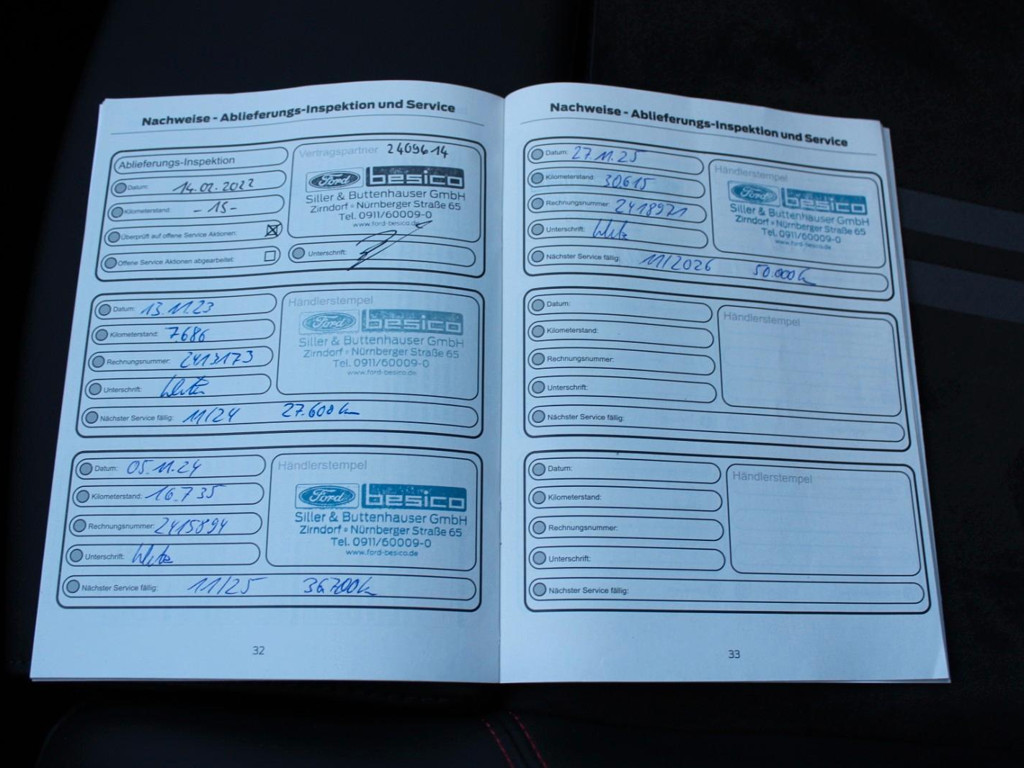 Nachweise - Ablieferungs-Inspektion und Service
Ablieferungs-Inspektion
Datum: 14.02.2022
Kilometerstand: - 15 -
Überprüft auf offene Service Aktionen:
Offene Service Aktionen abgearbeitet:
Vertragspartner 2409614
Ford besico
Siller & Buttenhauser GmbH
Zirndorf • Nürnberger Straße 65
Tel. 0911/60009-0
www.ford-besico.de
Unterschrift:
Datum: 13.11.23
Kilometerstand: 7686
Rechnungsnummer: 2413173
Unterschrift:
Nächster Service fällig: 11/24 27.600 km
Händlerstempel
Ford besico
Siller & Buttenhauser GmbH
Zirndorf • Nürnberger Straße 65
Tel. 0911/60009-0
www.ford-besico.de
Datum: 05.11.24
Kilometerstand: 16.735
Rechnungsnummer: 2415894
Unterschrift:
Nächster Service fällig: 11/25 36700 km
Händlerstempel
Ford besico
Siller & Buttenhauser GmbH
Zirndorf • Nürnberger Straße 65
Tel. 0911/60009-0
www.ford-besico.de
32
Nachweise - Ablieferungs-Inspektion und Service
Datum: 27.11.25
Kilometerstand: 30615
Rechnungsnummer: 2418921
Unterschrift:
Nächster Service fällig: 11/2026 50.000 km
Händlerstempel
Ford besico
Siller & Buttenhauser GmbH
Zirndorf • Nürnberger Straße 65
Tel. 0911/60009-0
www.ford-besico.de
Datum:
Kilometerstand:
Rechnungsnummer:
Unterschrift:
Nächster Service fällig:
Händlerstempel
Datum:
Kilometerstand:
Rechnungsnummer:
Unterschrift:
Nächster Service fällig:
Händlerstempel
33